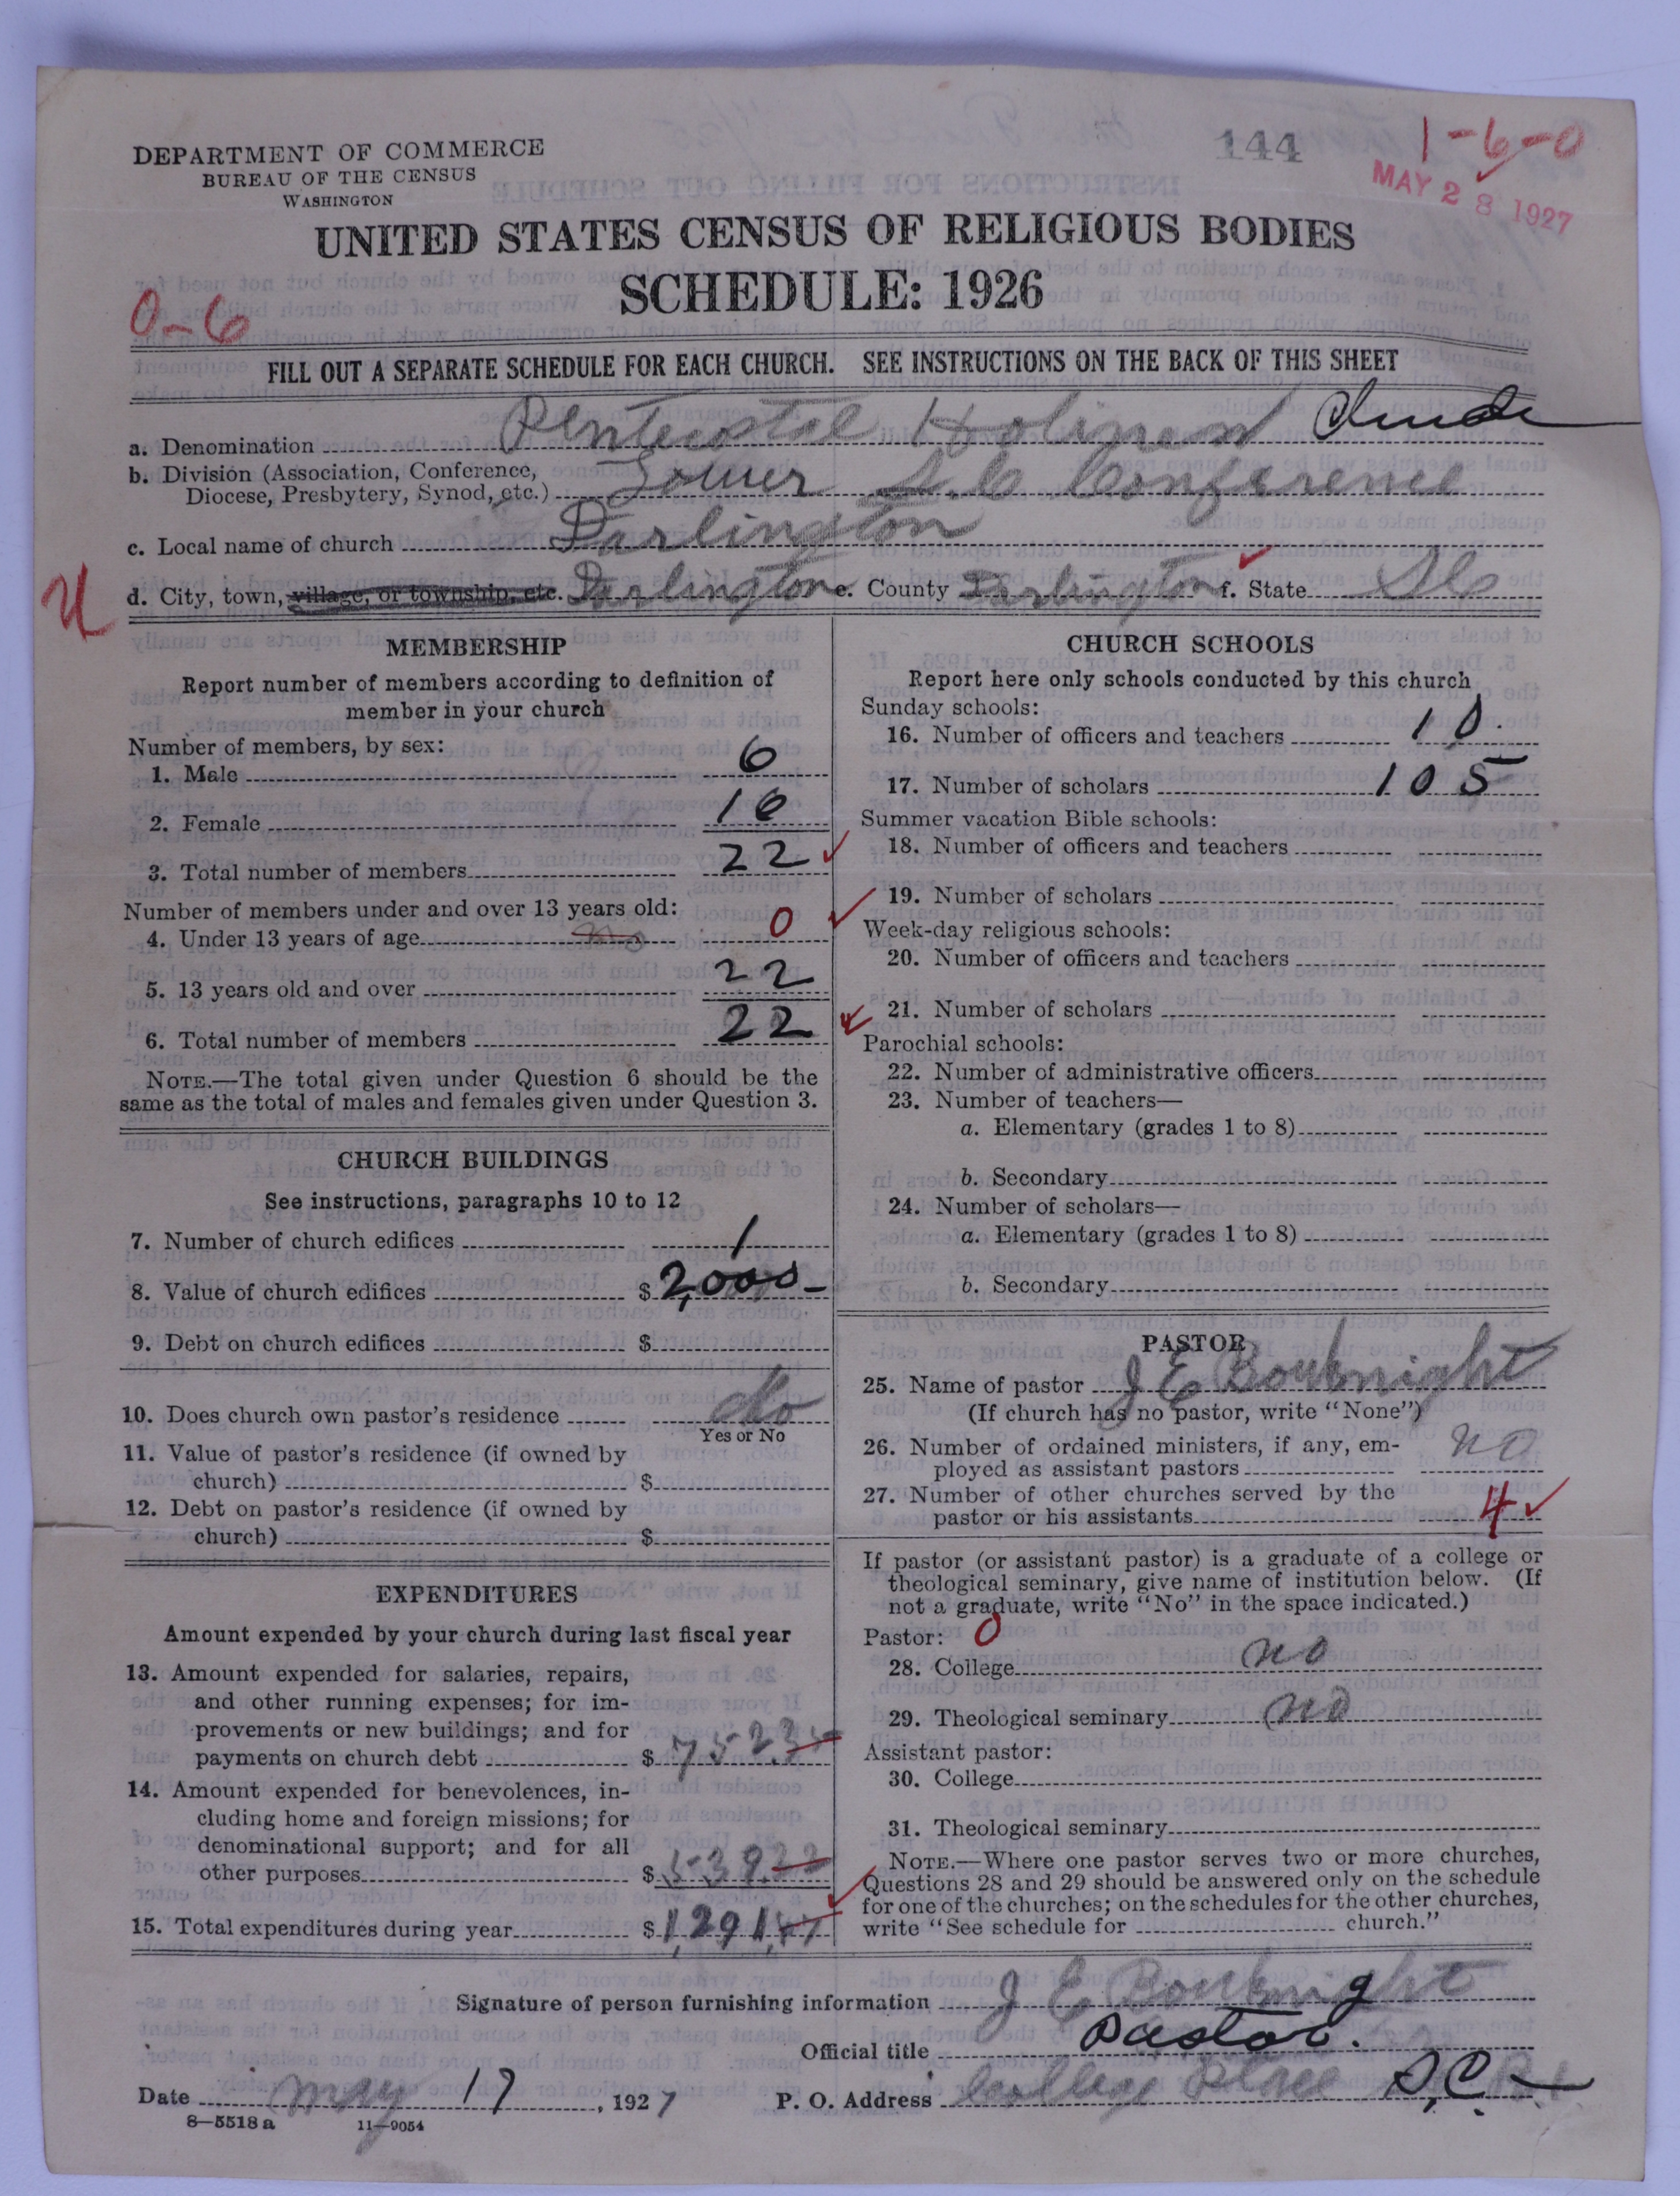 144
1-6-0
MAY 28 1927
DEPARTMENT OF COMMERCE
BUREAU OF THE CENSUS
WASHINGTON
UNITED STATES CENSUS OF RELIGIOUS BODIES
SCHEDULE: 1926
0-6
FILL OUT A SEPARATE SCHEDULE FOR EACH CHURCH. SEE INSTRUCTIONS ON THE BACK OF THIS SHEET
a. Denomination Pentecostal Holiness Church
b. Division (Association, Conference,
Diocese, Presbytery, Synod, etc.) Lower S.C Conference
c. Local name of church Darlington
U
d. City, town, village, or township, etc. Darlington e. County Darlington f. State SC
MEMBERSHIP
Report number of members according to definition of
member in your church
Number of members, by sex:
1. Male 6
2. Female 16
3. Total number of members 22
Number of members under and over 13 years old:
4. Under 13 years of age no 0
5. 13 years old and over 22
6. Total number of members 22
NOTE.—The total given under Question 6 should be the
same as the total of males and females given under Question 3.
CHURCH BUILDINGS
See instructions, paragraphs 10 to 12
7. Number of church edifices 1
8. Value of church edifices $2,000-
9. Debt on church edifices $
10. Does church own pastor's residence No
Yes or No
11. Value of pastor's residence (if owned by
church) $
12. Debt on pastor's residence (if owned by
church) $
EXPENDITURES
Amount expended by your church during last fiscal year
13. Amount expended for salaries, repairs,
and other running expenses; for im-
provements or new buildings; and for
payments on church debt $ 752.35
14. Amount expended for benevolences, in-
cluding home and foreign missions; for
denominational support; and for all
other purposes $ 539.22
15. Total expenditures during year $ 1,291.57
CHURCH SCHOOLS
Report here only schools conducted by this church
Sunday schools:
16. Number of officers and teachers 10.
17. Number of scholars 105
Summer vacation Bible schools:
18. Number of officers and teachers
19. Number of scholars
Week-day religious schools:
20. Number of officers and teachers
21. Number of scholars
Parochial schools:
22. Number of administrative officers
23. Number of teachers—
a. Elementary (grades 1 to 8)
b. Secondary
24. Number of scholars—
a. Elementary (grades 1 to 8)
b. Secondary
PASTOR
25. Name of pastor J E Bouknight
(If church has no pastor, write "None")
26. Number of ordained ministers, if any, em-
ployed as assistant pastors no
27. Number of other churches served by the
pastor or his assistants 4
If pastor (or assistant pastor) is a graduate of a college or
theological seminary, give name of institution below. (If
not a graduate, write "No" in the space indicated.)
Pastor: 0
28. College no
29. Theological seminary no
Assistant pastor:
30. College
31. Theological seminary
NOTE.—Where one pastor serves two or more churches,
Questions 28 and 29 should be answered only on the schedule
for one of the churches; on the schedules for the other churches,
write "See schedule for church."
Signature of person furnishing information J E Bouknight
Official title Pastor.
Date May 17, 1927 P. O. Address College Place S.C.
8—5518 a 11—9054